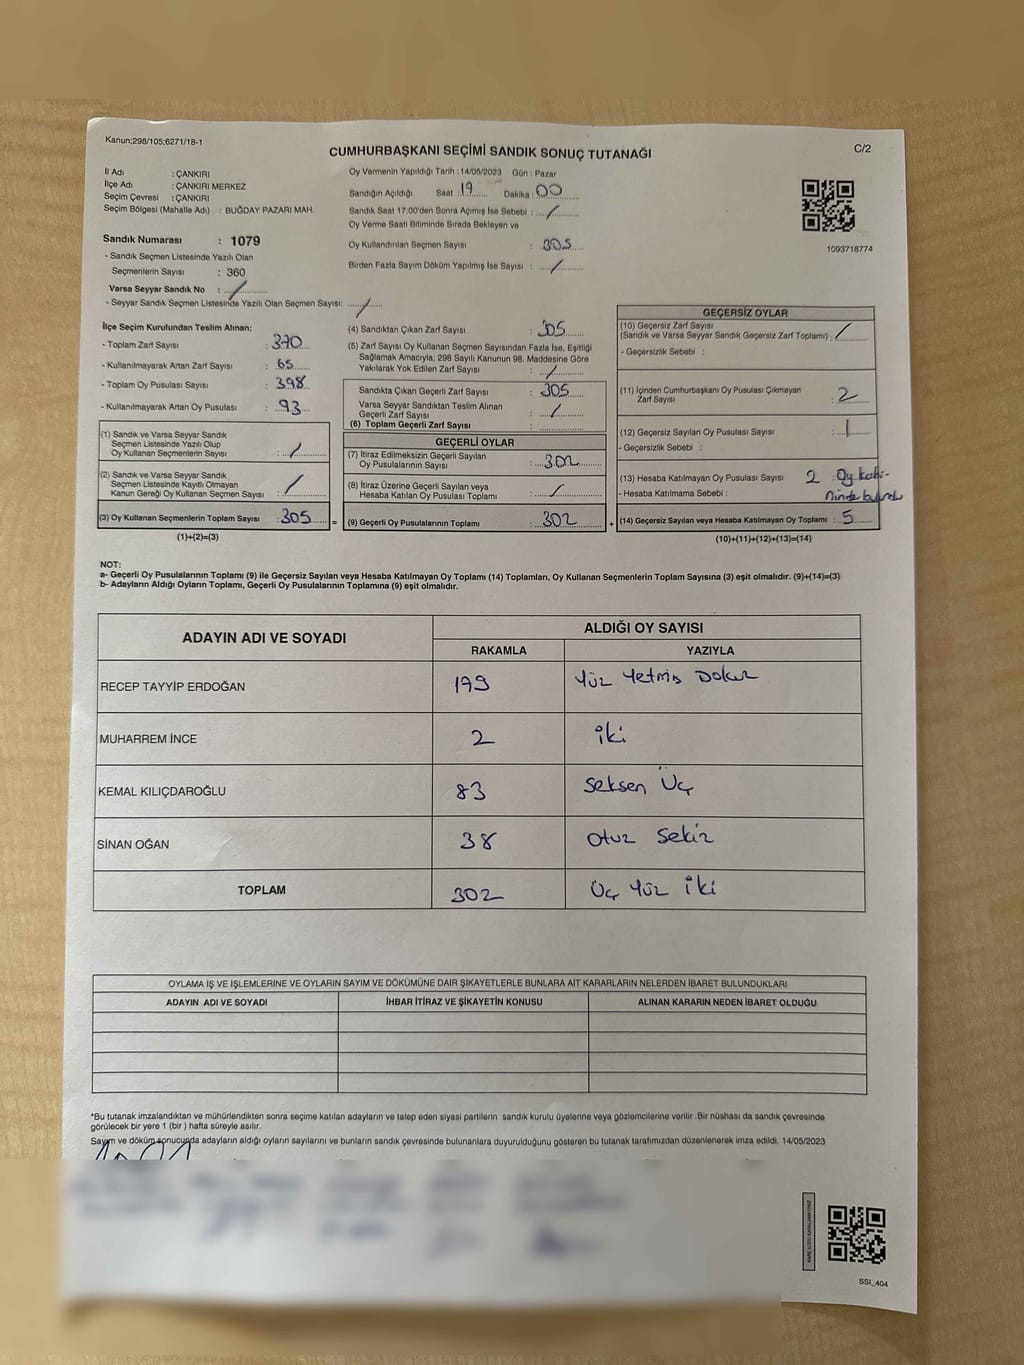 Kanun;298/105;6271/18-1
CUMHURBAŞKANI SEÇİMİ SANDIK SONUÇ TUTANAĞI
C/2
İl Adı : ÇANKIRI
İlçe Adı : ÇANKIRI MERKEZ
Seçim Çevresi : ÇANKIRI
Seçim Bölgesi (Mahalle Adı) : BUĞDAY PAZARI MAH.
Oy Vermenin Yapıldığı Tarih : 14/05/2023 Gün : Pazar
Sandığın Açıldığı Saat : 19 Dakika : 00
Sandık Saat 17:00'den Sonra Açımış İse Sebebi : /
Oy Verme Saati Bitiminde Sırada Bekleyen ve
Oy Kullandırılan Seçmen Sayısı : 305
Birden Fazla Sayım Döküm Yapılmış İse Sayısı : /
1093718774
Sandık Numarası : 1079
- Sandık Seçmen Listesinde Yazılı Olan
Seçmenlerin Sayısı : 360
Varsa Seyyar Sandık No : /
- Seyyar Sandık Seçmen Listesinde Yazılı Olan Seçmen Sayısı: /
İlçe Seçim Kurulundan Teslim Alınan:
- Toplam Zarf Sayısı : 370
- Kullanılmayarak Artan Zarf Sayısı : 65
- Toplam Oy Pusulası Sayısı : 398
- Kullanılmayarak Artan Oy Pusulası : 93
(1) Sandık ve Varsa Seyyar Sandık
Seçmen Listesinde Yazılı Olup
Oy Kullanan Seçmenlerin Sayısı : /
(2) Sandık ve Varsa Seyyar Sandık
Seçmen Listesinde Kayıtlı Olmayan
Kanun Gereği Oy Kullanan Seçmen Sayısı : /
(3) Oy Kullanan Seçmenlerin Toplam Sayısı : 305 =
(1)+(2)=(3)
(4) Sandıktan Çıkan Zarf Sayısı : 305
(5) Zarf Sayısı Oy Kullanan Seçmen Sayısından Fazla İse, Eşitliği
Sağlamak Amacıyla; 298 Sayılı Kanunun 98. Maddesine Göre
Yakılarak Yok Edilen Zarf Sayısı : /
Sandıkta Çıkan Geçerli Zarf Sayısı : 305
Varsa Seyyar Sandıktan Teslim Alınan
Geçerli Zarf Sayısı : /
(6) Toplam Geçerli Zarf Sayısı
GEÇERLİ OYLAR
(7) İtiraz Edilmeksizin Geçerli Sayılan
Oy Pusulalarının Sayısı : 302
(8) İtiraz Üzerine Geçerli Sayılan veya
Hesaba Katılan Oy Pusulası Toplamı : /
(9) Geçerli Oy Pusulalarının Toplamı : 302 +
GEÇERSİZ OYLAR
(10) Geçersiz Zarf Sayısı
(Sandık ve Varsa Seyyar Sandık Geçersiz Zarf Toplamı) : /
- Geçersizlik Sebebi :
(11) İçinden Cumhurbaşkanı Oy Pusulası Çıkmayan
Zarf Sayısı : 2
(12) Geçersiz Sayılan Oy Pusulası Sayısı : 1
- Geçersizlik Sebebi :
(13) Hesaba Katılmayan Oy Pusulası Sayısı : 2 Oy kabi-
- Hesaba Katılmama Sebebi : ninde
(14) Geçersiz Sayılan veya Hesaba Katılmayan Oy Toplamı : 5
(10)+(11)+(12)+(13)=(14)
NOT:
a- Geçerli Oy Pusulalarının Toplamı (9) ile Geçersiz Sayılan veya Hesaba Katılmayan Oy Toplamı (14) Toplamları, Oy Kullanan Seçmenlerin Toplam Sayısına (3) eşit olmalıdır. (9)+(14)=(3)
b- Adayların Aldığı Oyların Toplamı, Geçerli Oy Pusulalarının Toplamına (9) eşit olmalıdır.
ADAYIN ADI VE SOYADI
ALDIĞI OY SAYISI
RAKAMLA YAZIYLA
RECEP TAYYİP ERDOĞAN 179 Yüz Yetmiş Dokuz
MUHARREM İNCE 2 iki
KEMAL KILIÇDAROĞLU 83 Seksen Üç
SİNAN OĞAN 38 Otuz Sekiz
TOPLAM 302 Üç Yüz iki
OYLAMA İŞ VE İŞLEMLERİNE VE OYLARIN SAYIM VE DÖKÜMÜNE DAİR ŞİKAYETLERLE BUNLARA AİT KARARLARIN NELERDEN İBARET BULUNDUKLARI
ADAYIN ADI VE SOYADI İHBAR İTİRAZ VE ŞİKAYETİN KONUSU ALINAN KARARIN NEDEN İBARET OLDUĞU
*Bu tutanak imzalandıktan ve mühürlendikten sonra seçime katılan adayların ve talep eden siyasi partilerin sandık kurulu üyelerine veya gözlemcilerine verilir .Bir nüshası da sandık çevresinde
görülecek bir yere 1 (bir ) hafta süreyle asılır.
Sayım ve döküm sonucunda adayların aldığı oyların sayılarını ve bunların sandık çevresinde bulunanlara duyurulduğunu gösteren bu tutanak tarafımızdan düzenlenerek imza edildi. 14/05/2023
SSI_404